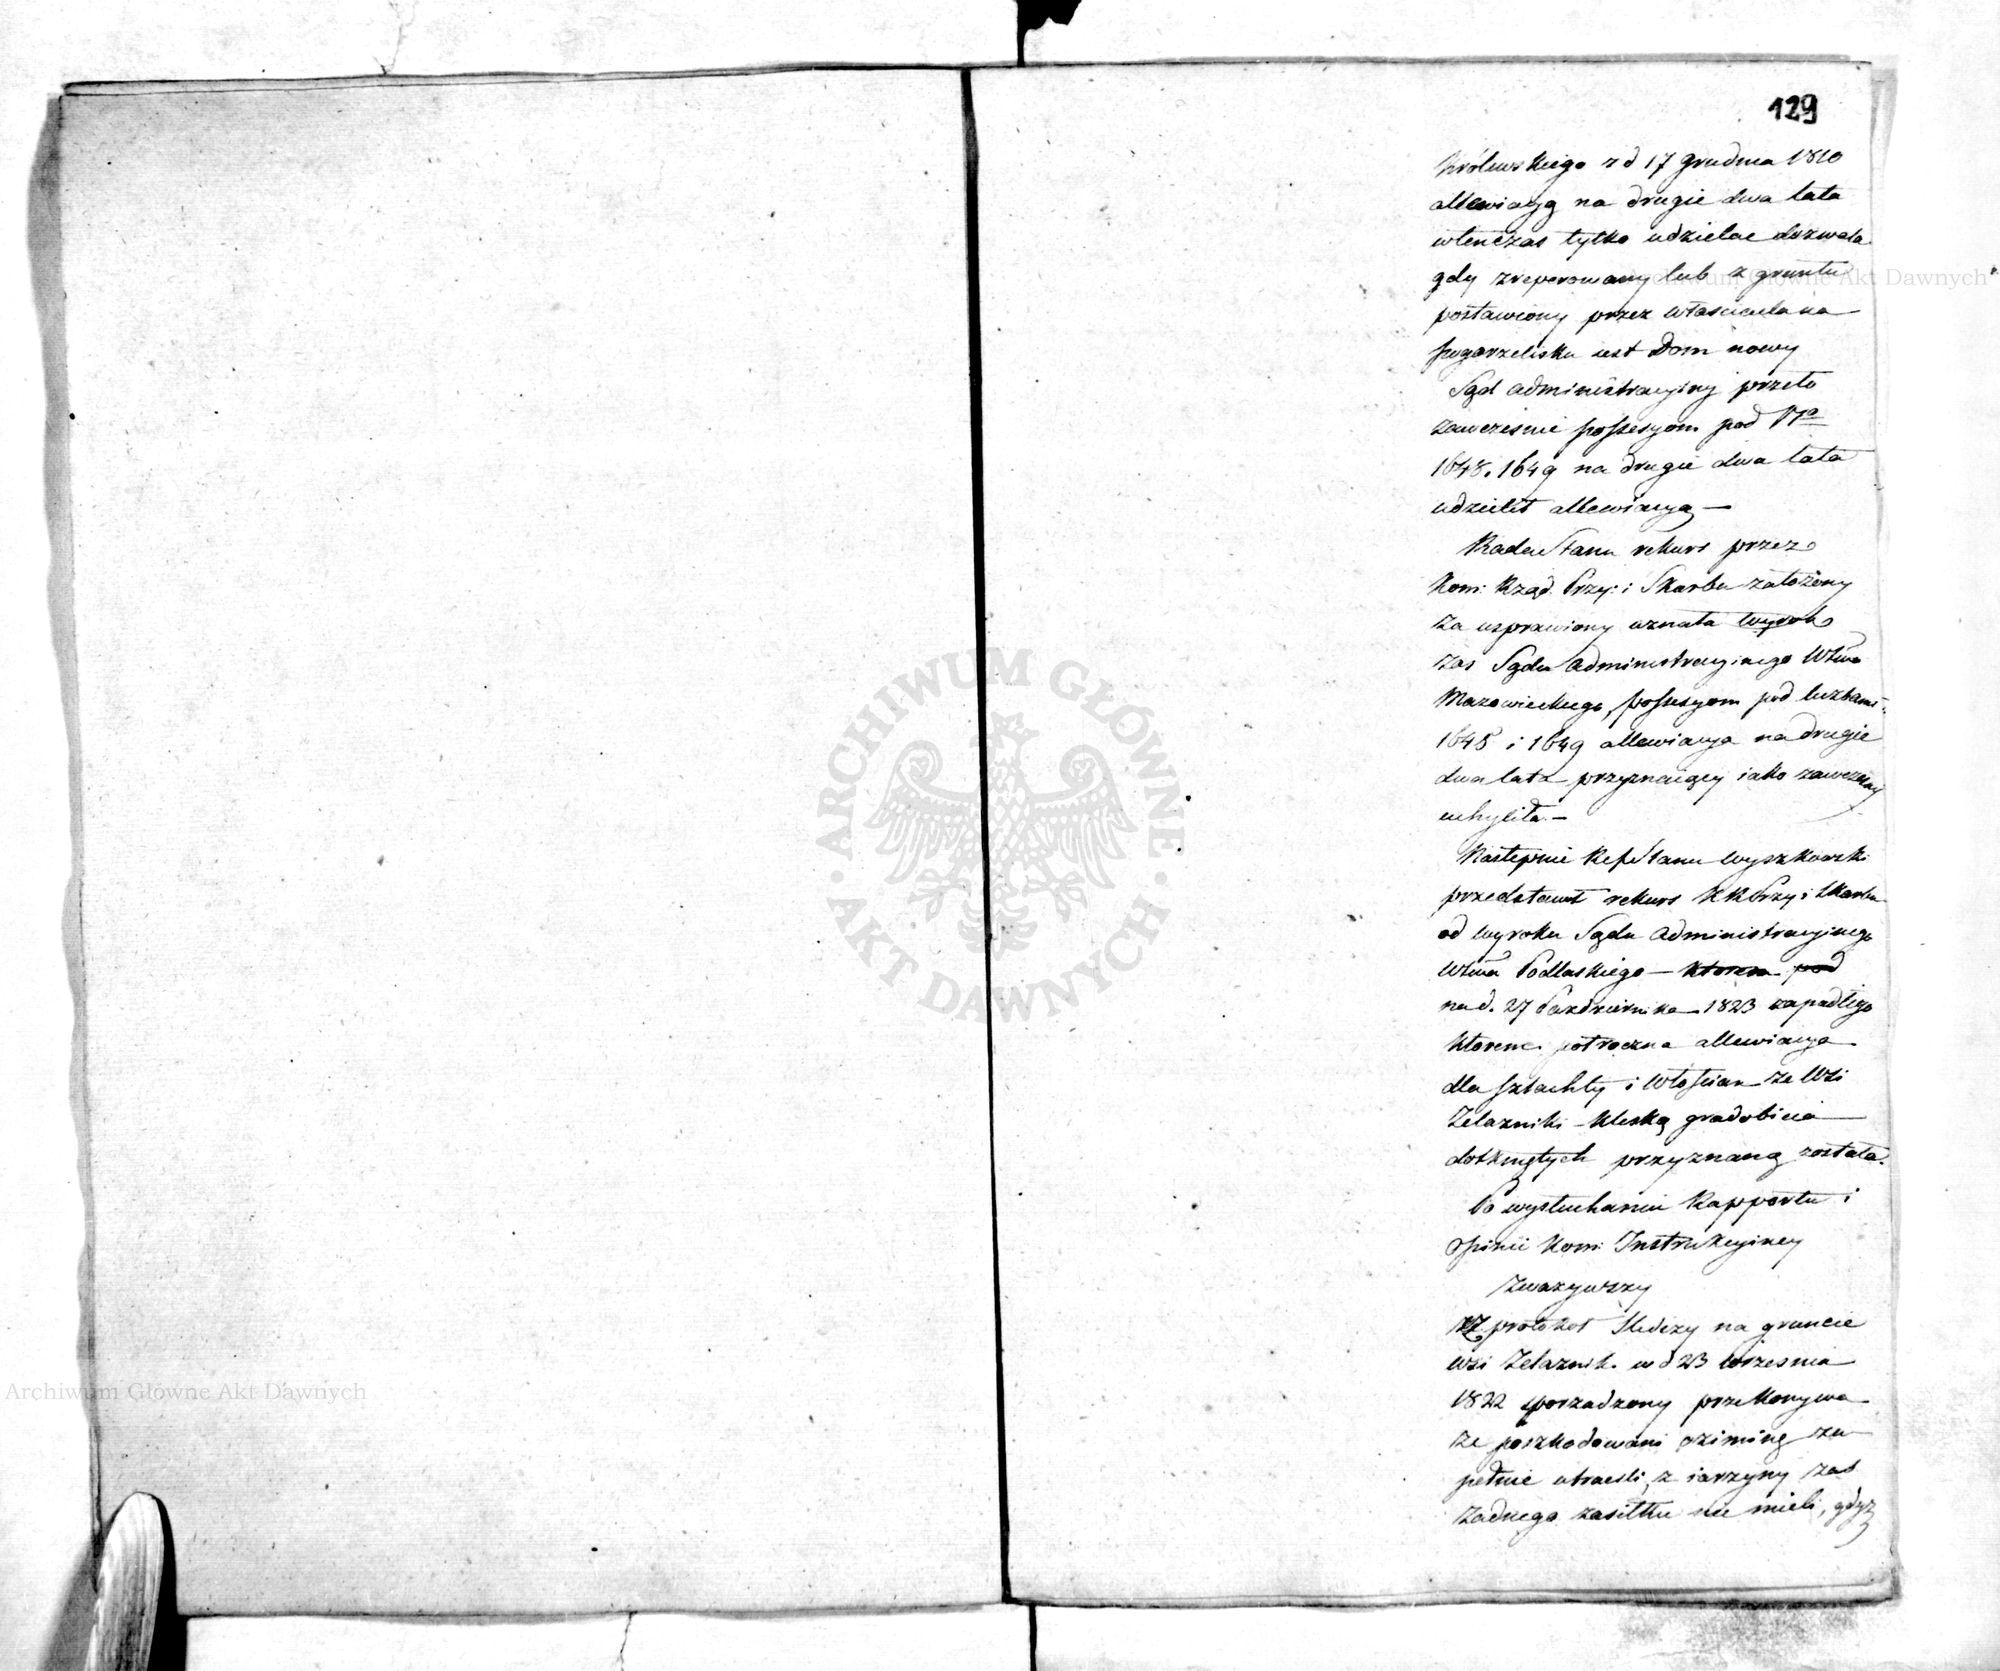 129
Królewskiego z d 17 Grudnia 1810
allewiacyą na drugie dwa lata
wtenczas tylko udzielac dozwala
gdy zreperowany lub z gruntu
postawiony przez własciciela na
pogorzelisku iest Dom nowy
Sąd administracyiny przeto
zawczesnie possesyom pod No
1648. 1649 na drugie dwa lata
udzielił allewiacyą —
Rada Stanu rekurs przez
Kom: Rząd. Przy: i Skarbu założony
za usprawiony uznała wyrok
zas Sądu Administracyinego Wtwa
Mazowieckiego, possesyom pod liczbami
1648 i 1649 allewiacya na drugie
dwa lata przyznaiący iako zawczesny
uchyliła. —
Następnie Refe Stanu Wyszkowski
przedstawił rekurs KRPrzy i Skarbu
od wyroku Sądu Administracyinego
Wtwa Podlaskiego — ktorem pod
na d. 27 Października 1823 zapadłego
ktorem połroczna allewiacya
dla szlachty i Włoscian ze Wsi
Zelazniki — klęską gradobicia
dotkniętych przyznaną została.
Po wysłuchaniu Rapportu i
Opinii Kom: Instrukcyiney
Zwazywszy
Ze protokoł Sledczy na gruncie
wsi Zelaznik. w d 23 Wrzesnia
1822 sporzadzony przekonywa
ze poszkodowani oziminę zu
pełnie utracili, z iarzyny zas
zadnego zasiłku nie mieli, gdyz
ARCHIWUM GŁÓWNE
AKT DAWNYCH
Archiwum Główne Akt Dawnych
Archiwum Główne Akt Dawnych